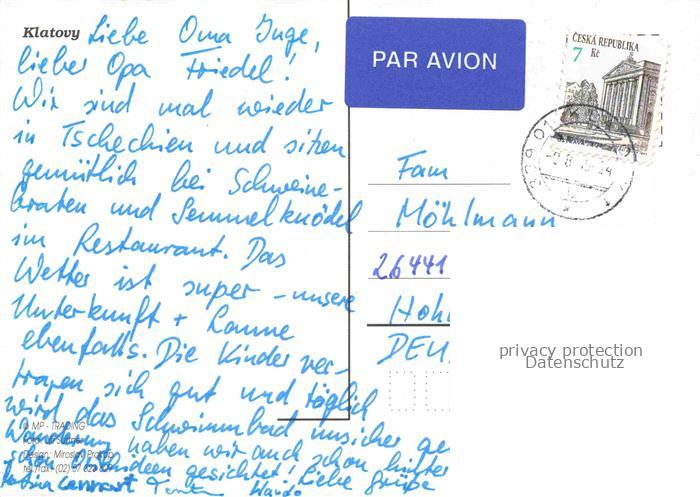 Klatovy
Liebe Oma Inge,
lieber Opa Friedel!
Wir sind mal wieder
in Tschechien und sitzen
gemütlich bei Schweine-
braten und Semmelknödel
im Restaurant. Das
Wetter ist super - unsere
Unterkunft + Laune
ebenfalls. Die Kinder ver-
tragen sich gut und täglich
wird das Schwimmbad unsicher
Wanderung haben wir auch schon hinter
schon gesichtet! Liebe Grüße
Lennart
© MP - TRADING
Design: Miroslav
PAR AVION
ČESKÁ REPUBLIKA
7 Kč
Fam
Möhlmann
26441
privacy protection
Datenschutz